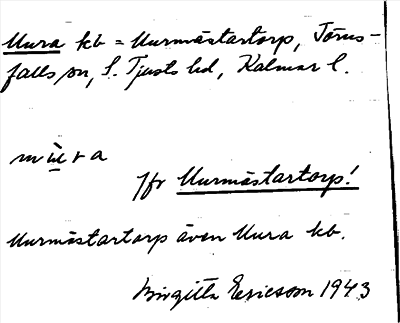 Mura kb = Murmästartorp, Törns-
falls sn, S. Tjusts hd, Kalmar l.
mu̠̇ra
Jfr Murmästartorp!
Murmästartorp även Mura kb.
Birgitta Ericsson 1943